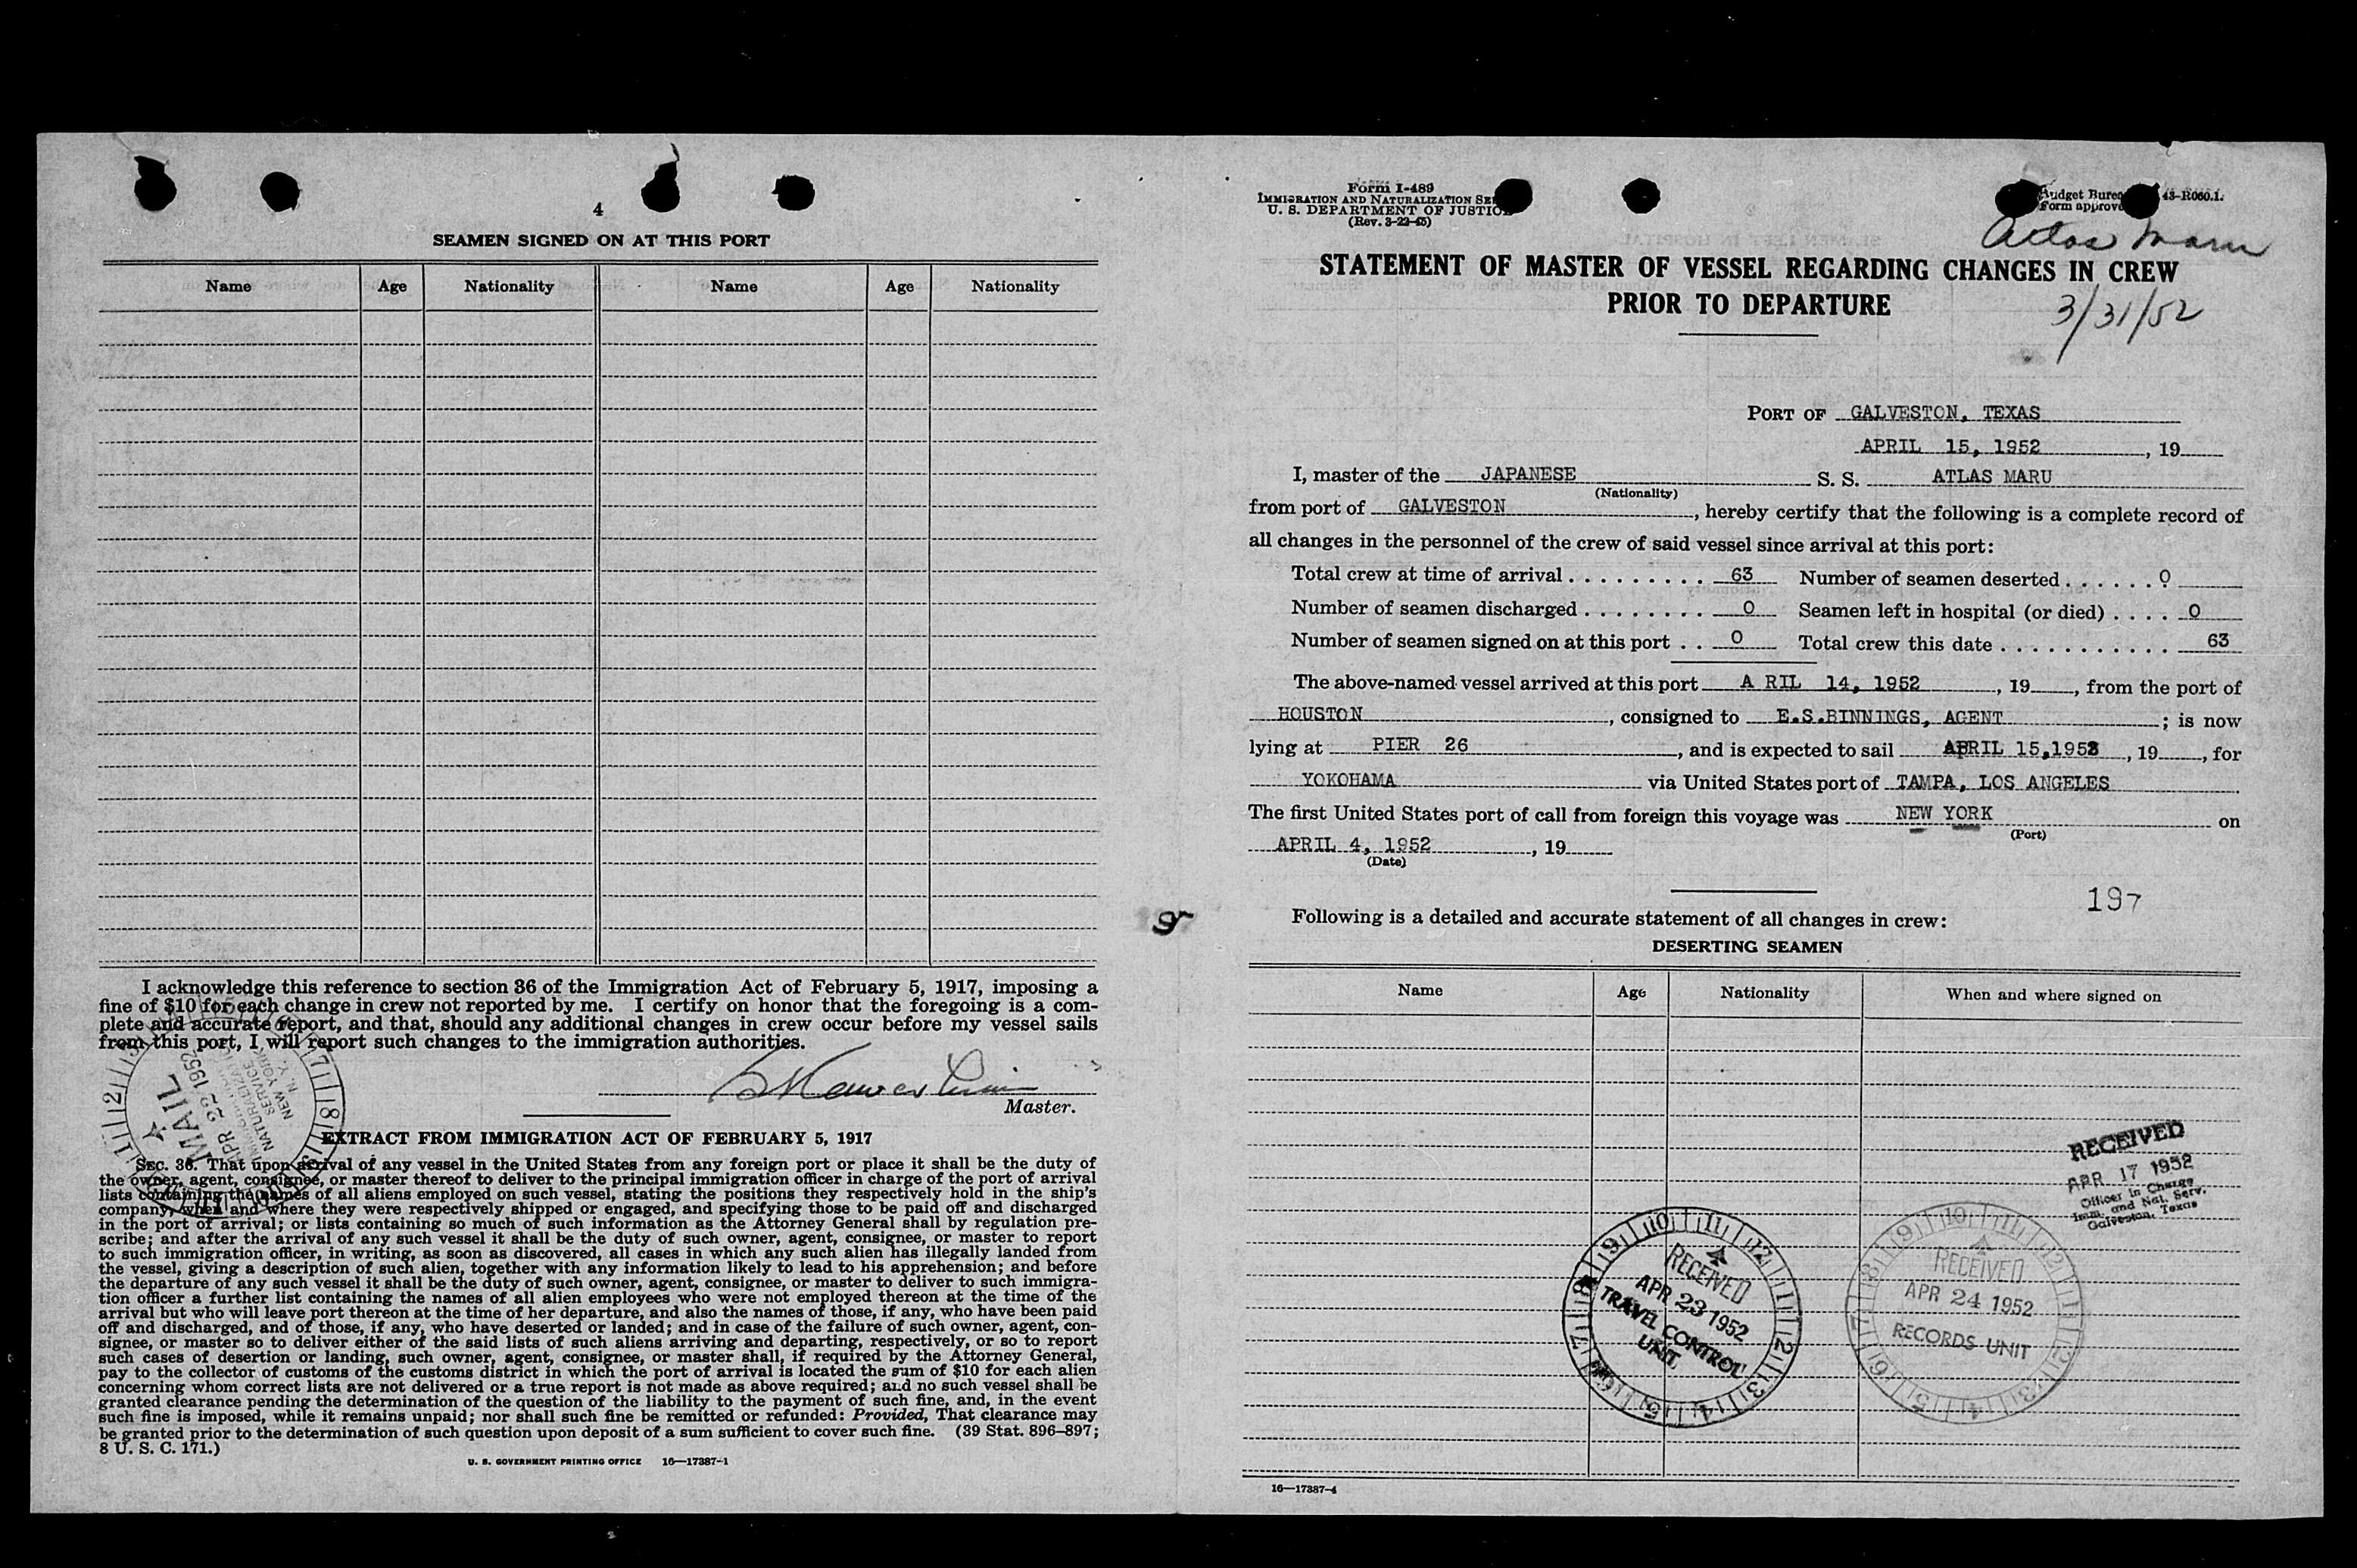 4
SEAMEN SIGNED ON AT THIS PORT
Name Age Nationality Name Age Nationality
I acknowledge this reference to section 36 of the Immigration Act of February 5, 1917, imposing a
fine of $10 for each change in crew not reported by me. I certify on honor that the foregoing is a com-
plete and accurate report, and that, should any additional changes in crew occur before my vessel sails
from this port, I will report such changes to the immigration authorities.
Master.
MAIL
APR 22 1952
NATURALIZATION
SERVICE
NEW YORK
N. Y.
EXTRACT FROM IMMIGRATION ACT OF FEBRUARY 5, 1917
SEC. 36. That upon arrival of any vessel in the United States from any foreign port or place it shall be the duty of
the owner, agent, consignee, or master thereof to deliver to the principal immigration officer in charge of the port of arrival
lists containing the names of all aliens employed on such vessel, stating the positions they respectively hold in the ship's
company, when and where they were respectively shipped or engaged, and specifying those to be paid off and discharged
in the port of arrival; or lists containing so much of such information as the Attorney General shall by regulation pre-
scribe; and after the arrival of any such vessel it shall be the duty of such owner, agent, consignee, or master to report
to such immigration officer, in writing, as soon as discovered, all cases in which any such alien has illegally landed from
the vessel, giving a description of such alien, together with any information likely to lead to his apprehension; and before
the departure of any such vessel it shall be the duty of such owner, agent, consignee, or master to deliver to such immigra-
tion officer a further list containing the names of all alien employees who were not employed thereon at the time of the
arrival but who will leave port thereon at the time of her departure, and also the names of those, if any, who have been paid
off and discharged, and of those, if any, who have deserted or landed; and in case of the failure of such owner, agent, con-
signee, or master so to deliver either of the said lists of such aliens arriving and departing, respectively, or so to report
such cases of desertion or landing, such owner, agent, consignee, or master shall, if required by the Attorney General,
pay to the collector of customs of the customs district in which the port of arrival is located the sum of $10 for each alien
concerning whom correct lists are not delivered or a true report is not made as above required; and no such vessel shall be
granted clearance pending the determination of the question of the liability to the payment of such fine, and, in the event
such fine is imposed, while it remains unpaid; nor shall such fine be remitted or refunded: Provided, That clearance may
be granted prior to the determination of such question upon deposit of a sum sufficient to cover such fine. (39 Stat. 896–897;
8 U. S. C. 171.)
U. S. GOVERNMENT PRINTING OFFICE 16—17387-1
Form I-489
IMMIGRATION AND NATURALIZATION
U. S. DEPARTMENT OF JUSTICE
(Rev. 3-22-45)
Budget Bureau 43-R060.1.
Form approved
Atlas Maru
STATEMENT OF MASTER OF VESSEL REGARDING CHANGES IN CREW
PRIOR TO DEPARTURE
3/31/52
PORT OF GALVESTON, TEXAS
APRIL 15, 1952, 19
I, master of the JAPANESE S. S. ATLAS MARU
(Nationality)
from port of GALVESTON, hereby certify that the following is a complete record of
all changes in the personnel of the crew of said vessel since arrival at this port:
Total crew at time of arrival . . . . . . . . . 63 Number of seamen deserted . . . . . . 0
Number of seamen discharged . . . . . . . . 0 Seamen left in hospital (or died) . . . . 0
Number of seamen signed on at this port . . 0 Total crew this date . . . . . . . . . . . 63
The above-named vessel arrived at this port A RIL 14, 1952, 19, from the port of
HOUSTON, consigned to E.S.BINNINGS, AGENT; is now
lying at PIER 26, and is expected to sail APRIL 15,1952, 19, for
YOKOHAMA via United States port of TAMPA, LOS ANGELES
The first United States port of call from foreign this voyage was NEW YORK on
(Port)
APRIL 4, 1952, 19
(Date)
197
Following is a detailed and accurate statement of all changes in crew:
DESERTING SEAMEN
Name Age Nationality When and where signed on
RECEIVED
APR 17 1952
Officer in Charge
Imm. and Nat. Serv.
Galveston, Texas
RECEIVED
APR 23 1952
TRAVEL CONTROL
UNIT.
RECEIVED
APR 24 1952
RECORDS UNIT
16—17387-4